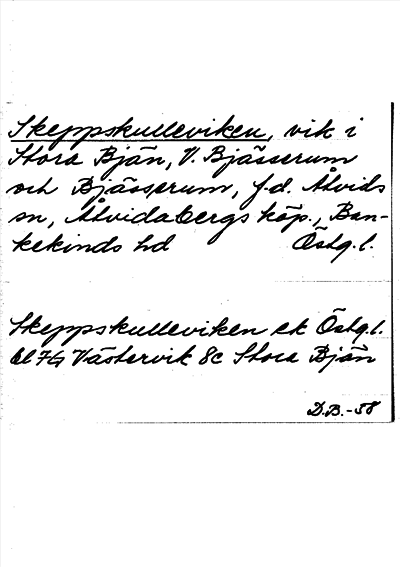 Skeppskulleviken, vik i
Stora Bjän, V. Bjässerum
och Bjässerum, f.d. Åtvids
sn, Åtvidabergs köp., Ban-
kekinds hd Östg.l.
Skeppskulleviken ek Östg.l.
bl 74 Västervik 8c Stora Bjän
D.B.-58